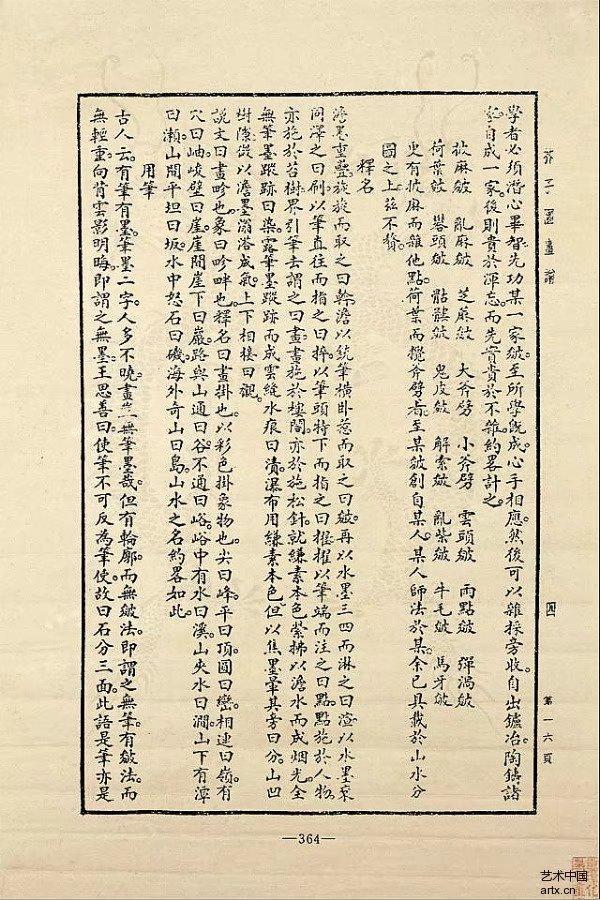 芥子園畫譜
四
第一六頁
學者必須潛心畢智先功某一家皴至所學既成心手相應然後可以雜採旁收自出鑪冶陶鎔諸
家自成一家後則貴於渾忘而先實貴於不雜約畧計之
披麻皴 亂麻皴 芝麻皴 大斧劈 小斧劈 雲頭皴 雨點皴 彈渦皴
荷葉皴 礬頭皴 骷髏皴 鬼皮皴 解索皴 亂柴皴 牛毛皴 馬牙皴
更有披麻而雜他點荷葉而攪斧劈者至某皴創自某人某人師法於某余已具載於山水分
圖之上茲不贅
釋名
淡墨重疊旋旋而取之曰斡澹以銳筆橫卧惹而取之曰皴再以水墨三四而淋之曰渲以水墨衮
同澤之曰刷以筆直往而指之曰捽以筆頭特下而指之曰擢擢以筆端而注之曰點點施於人物
亦施於苔樹界引筆去謂之曰畫畫施於樓閣亦於施松針就縑素本色縈拂以澹水而成烟光全
無筆墨蹤跡曰染露筆墨蹤跡而成雲縫水痕曰漬瀑布用縑素本色但以焦墨暈其旁曰分山凹
樹隙微以澹墨滃溶成氣上下相接曰襯
說文曰畫畛也象曰畛畔也釋名曰畫掛也以彩色掛象物也尖曰峰平曰頂圓曰巒相連曰嶺有
穴曰岫峻壁曰崖崖間崖下曰巖路與山通曰谷不通曰峪峪中有水曰溪山夾水曰澗山下有潭
曰瀨山間平坦曰坂水中怒石曰磯海外奇山曰島山水之名約畧如此
用筆
古人云有筆有墨筆墨二字人多不曉畫豈無筆墨哉但有輪廓而無皴法即謂之無筆有皴法而
無輕重向背雲影明晦即謂之無墨王思善曰使筆不可反為筆使故曰石分三面此語是筆亦是
—364—
艺术中国
artx.cn